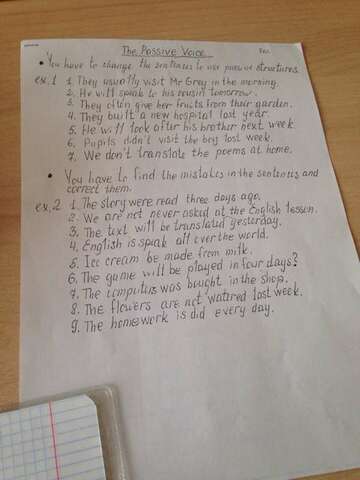 The Passive Voice
• You have to change the sentences to use passive structures.
ex. 1 1. They usually visit Mr Grey in the morning.
2. He will speak to his cousin tomorrow.
3. They often give her fruits from their garden.
4. They built a new hospital last year.
5. He will look after his brother next week.
6. Pupils didn't visit the boy last week.
7. We don't translate the poems at home.
• You have to find the mistakes in the sentences and
correct them.
ex. 2 1. The story were read three days ago.
2. We are not never asked at the English lesson.
3. The text will be translated yesterday.
4. English is speak all over the world.
5. Ice cream be made from milk.
6. The game will be played in four days?
7. The computers was bought in the shop.
8. The flowers are not watered last week.
9. The homework is did every day.